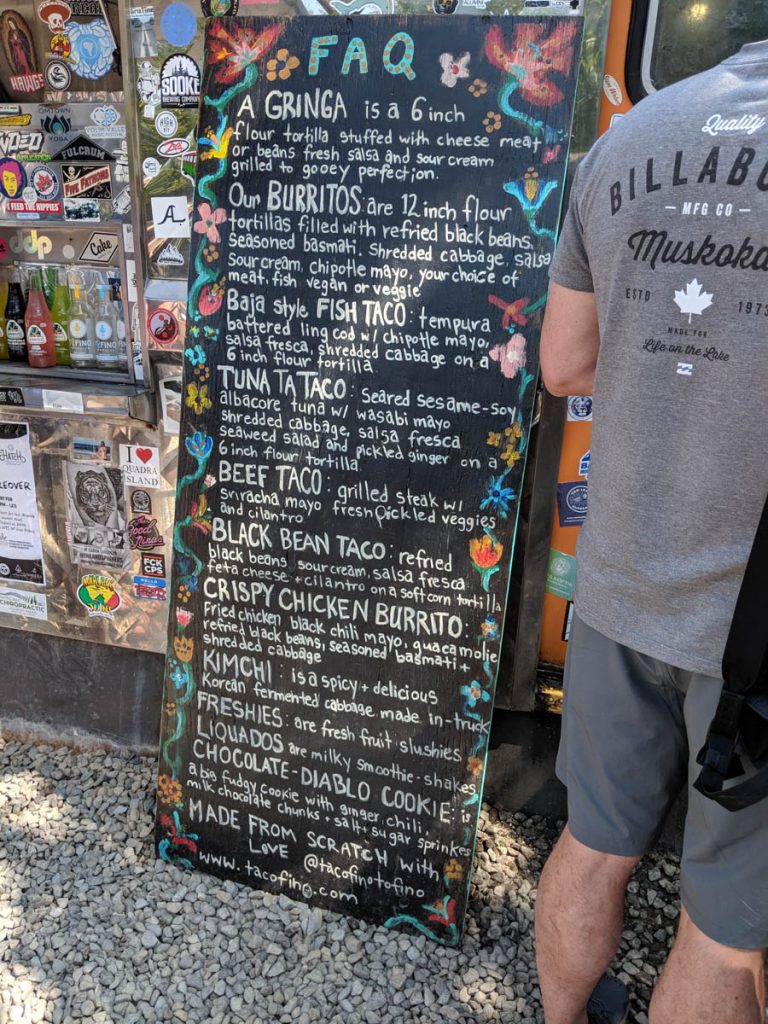 FAQ
A GRINGA is a 6 inch
flour tortilla stuffed with cheese meat
or beans fresh salsa and sour cream
grilled to gooey perfection.
Our BURRITOS: are 12 inch flour
tortillas filled with refried black beans,
seasoned basmati, shredded cabbage, salsa
sour cream, chipotle mayo, your choice of
meat, fish vegan or veggie
Baja style FISH TACO: tempura
battered ling cod w/ chipotle mayo,
salsa fresca, shredded cabbage on a
6 inch flour tortilla
TUNA TA TACO: Seared sesame-soy
albacore tuna w/ wasabi mayo
shredded cabbage, salsa fresca
seaweed salad and pickled ginger on a
6 inch flour tortilla.
BEEF TACO: grilled steak w/
sriracha mayo fresh pickled veggies
and cilantro
BLACK BEAN TACO: refried
black beans, sour cream, salsa fresca
feta cheese + cilantro on a soft corn tortilla
CRISPY CHICKEN BURRITO:
Fried chicken black chili mayo, guacamolie
refried black beans, seasoned basmati +
shredded cabbage
KIMCHI: is a spicy + delicious
Korean fermented cabbage made in-truck
FRESHIES: are fresh fruit slushies
LIQUADOS are milky smoothie-shakes
CHOCOLATE-DIABLO COOKIE: is
a big fudgy cookie with ginger, chili,
milk chocolate chunks + salt + sugar sprinkes
MADE FROM SCRATCH with
LOVE @tacofinotofino
www.tacofino.com
Quality
BILLABO
MFG CO
Muskoka
ESTD 1973
MADE FOR
Life on the Lake
SOOKE
BREWING COMPANY
HIGH
FULCRUM
FIVE
FATHOMS
YOGA
FEED THE KIPPIES
AL
Cake
I ♥
QUADRA
ISLAND
FCK
CPS
CHIROPRACTIC